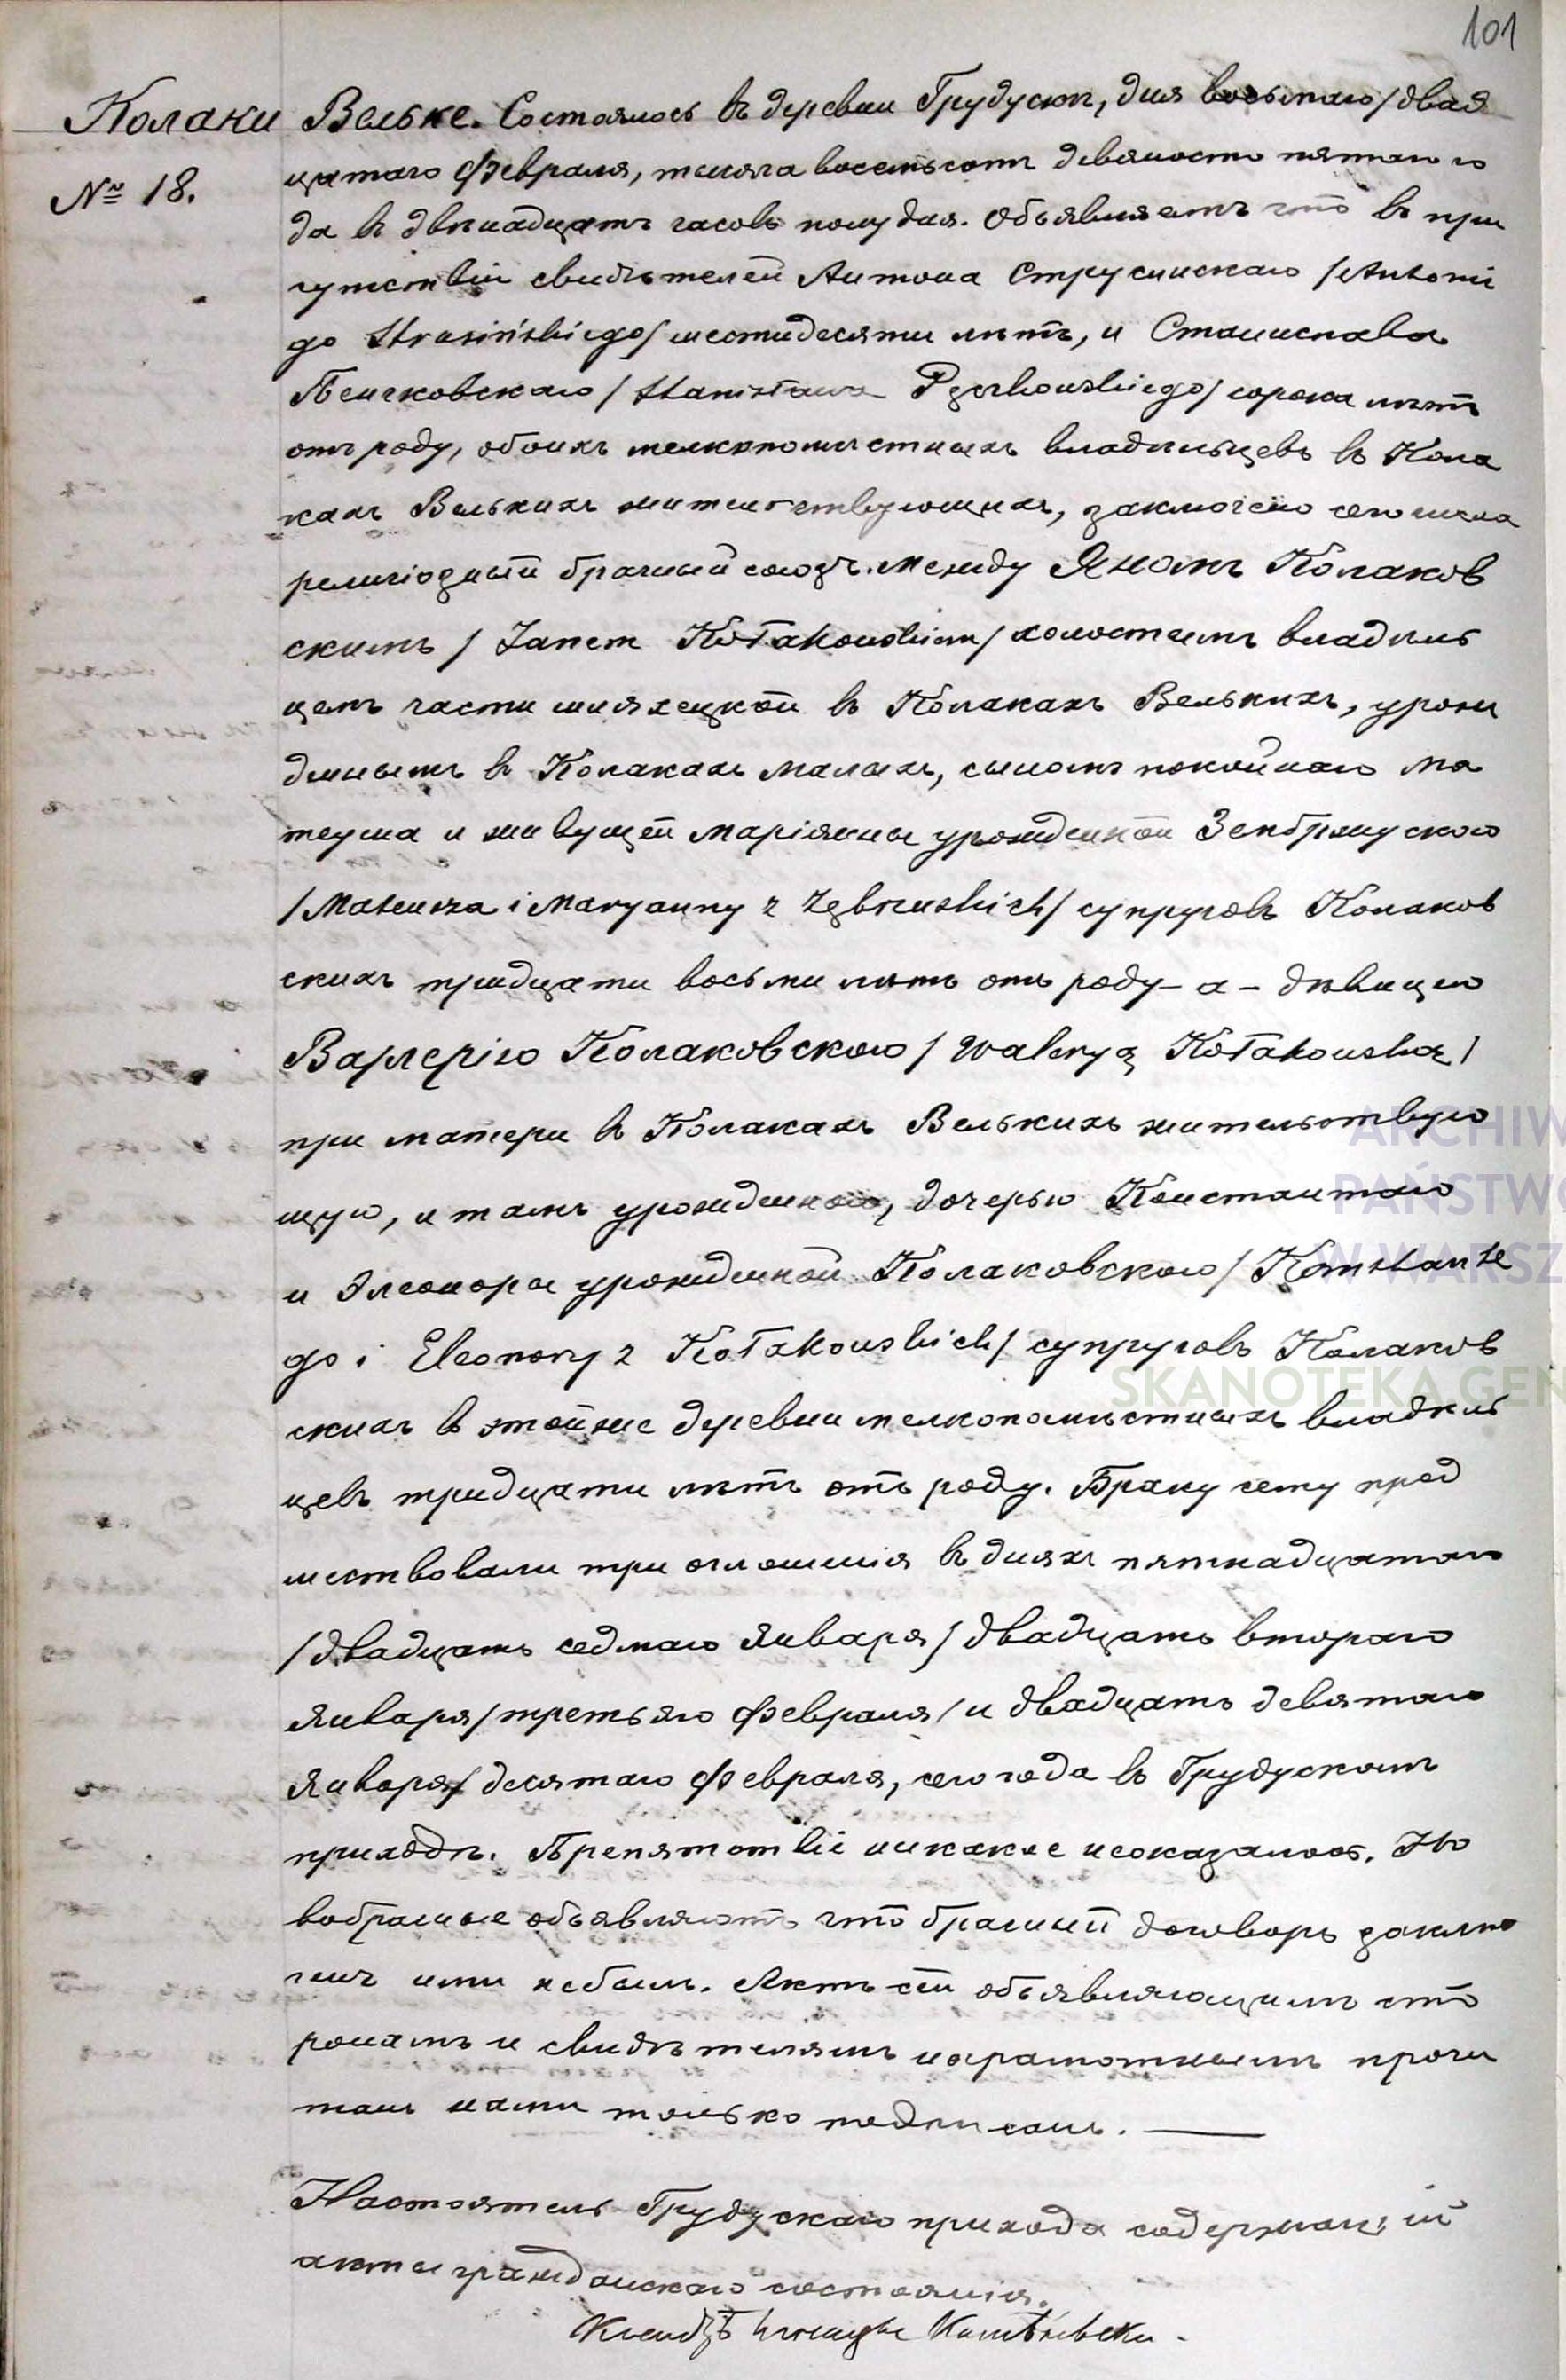 101
Колаки Вельке. Состоялось въ деревни Грудускъ, дня восьмаго/двад
№ 18.
цатаго Февраля, тысяча восемьсотъ девяносто пятаго го
да въ двѣнадцать часовъ полудня. Объявляемъ что въ при
сутствіи свидѣтелей Антона Струсинскаго /Antonie
go Strusińskiego/ шестидесяти лѣтъ, и Станислава
/Stanisława Pęczkowskiego/ сорока лѣтъ
отъ роду, обоихъ мелкопомѣстныхъ владѣльцевъ въ Кола
кахъ Велькихъ жительствующихъ, заключено сего числа
религіозный брачный союзъ между Яномъ Колаков
скимъ /Janem Kołakowskim/ холостымъ владѣль
цемъ части шляхецкой въ Колакахъ Велькихъ, урож
деннымъ въ Колакахъ Малыхъ, сыномъ покойнаго Ма
теуша и живущей Маріянны урожденной Зембржускою
/Mateusza i Maryanny z Zębrzuskich/ супруговъ Колаков
скихъ тридцати восьми лѣтъ отъ роду – а – дѣвицею
Валерією Колаковскою /Waleryą Kołakowską/
при матери въ Колакахъ Велькихъ жительствую
щую, и тамъ урожденною, дочерью Константаго
и Элеоноры урожденной Колаковскою /Konstante
go i Eleonory z Kołakowskich/ супруговъ Колаков
скихъ въ этойже деревни мелкопомѣстныхъ владѣль
цевъ тридцати лѣтъ отъ роду. Браку сему пред
шествовали три оглашенія въ дняхъ пятнадцатаго
/двадцать седмаго Января/ двадцать втораго
Января/третьяго Февраля/ и двадцать девятаго
Января/десятаго Февраля, сего года въ Грудускомъ
приходѣ. Препятствіе никакое неоказалось. Но
вобрачные объявляютъ что брачный договоръ заклю
ченъ ими небылъ. Актъ сей объявляющимъ сто
ронамъ и свидѣтелямъ неграмотнымъ прочи
танъ нами только подписанъ.
Настоятель Грудускаго прихода содержащій
акты гражданскаго состоянія.
Ксендзъ